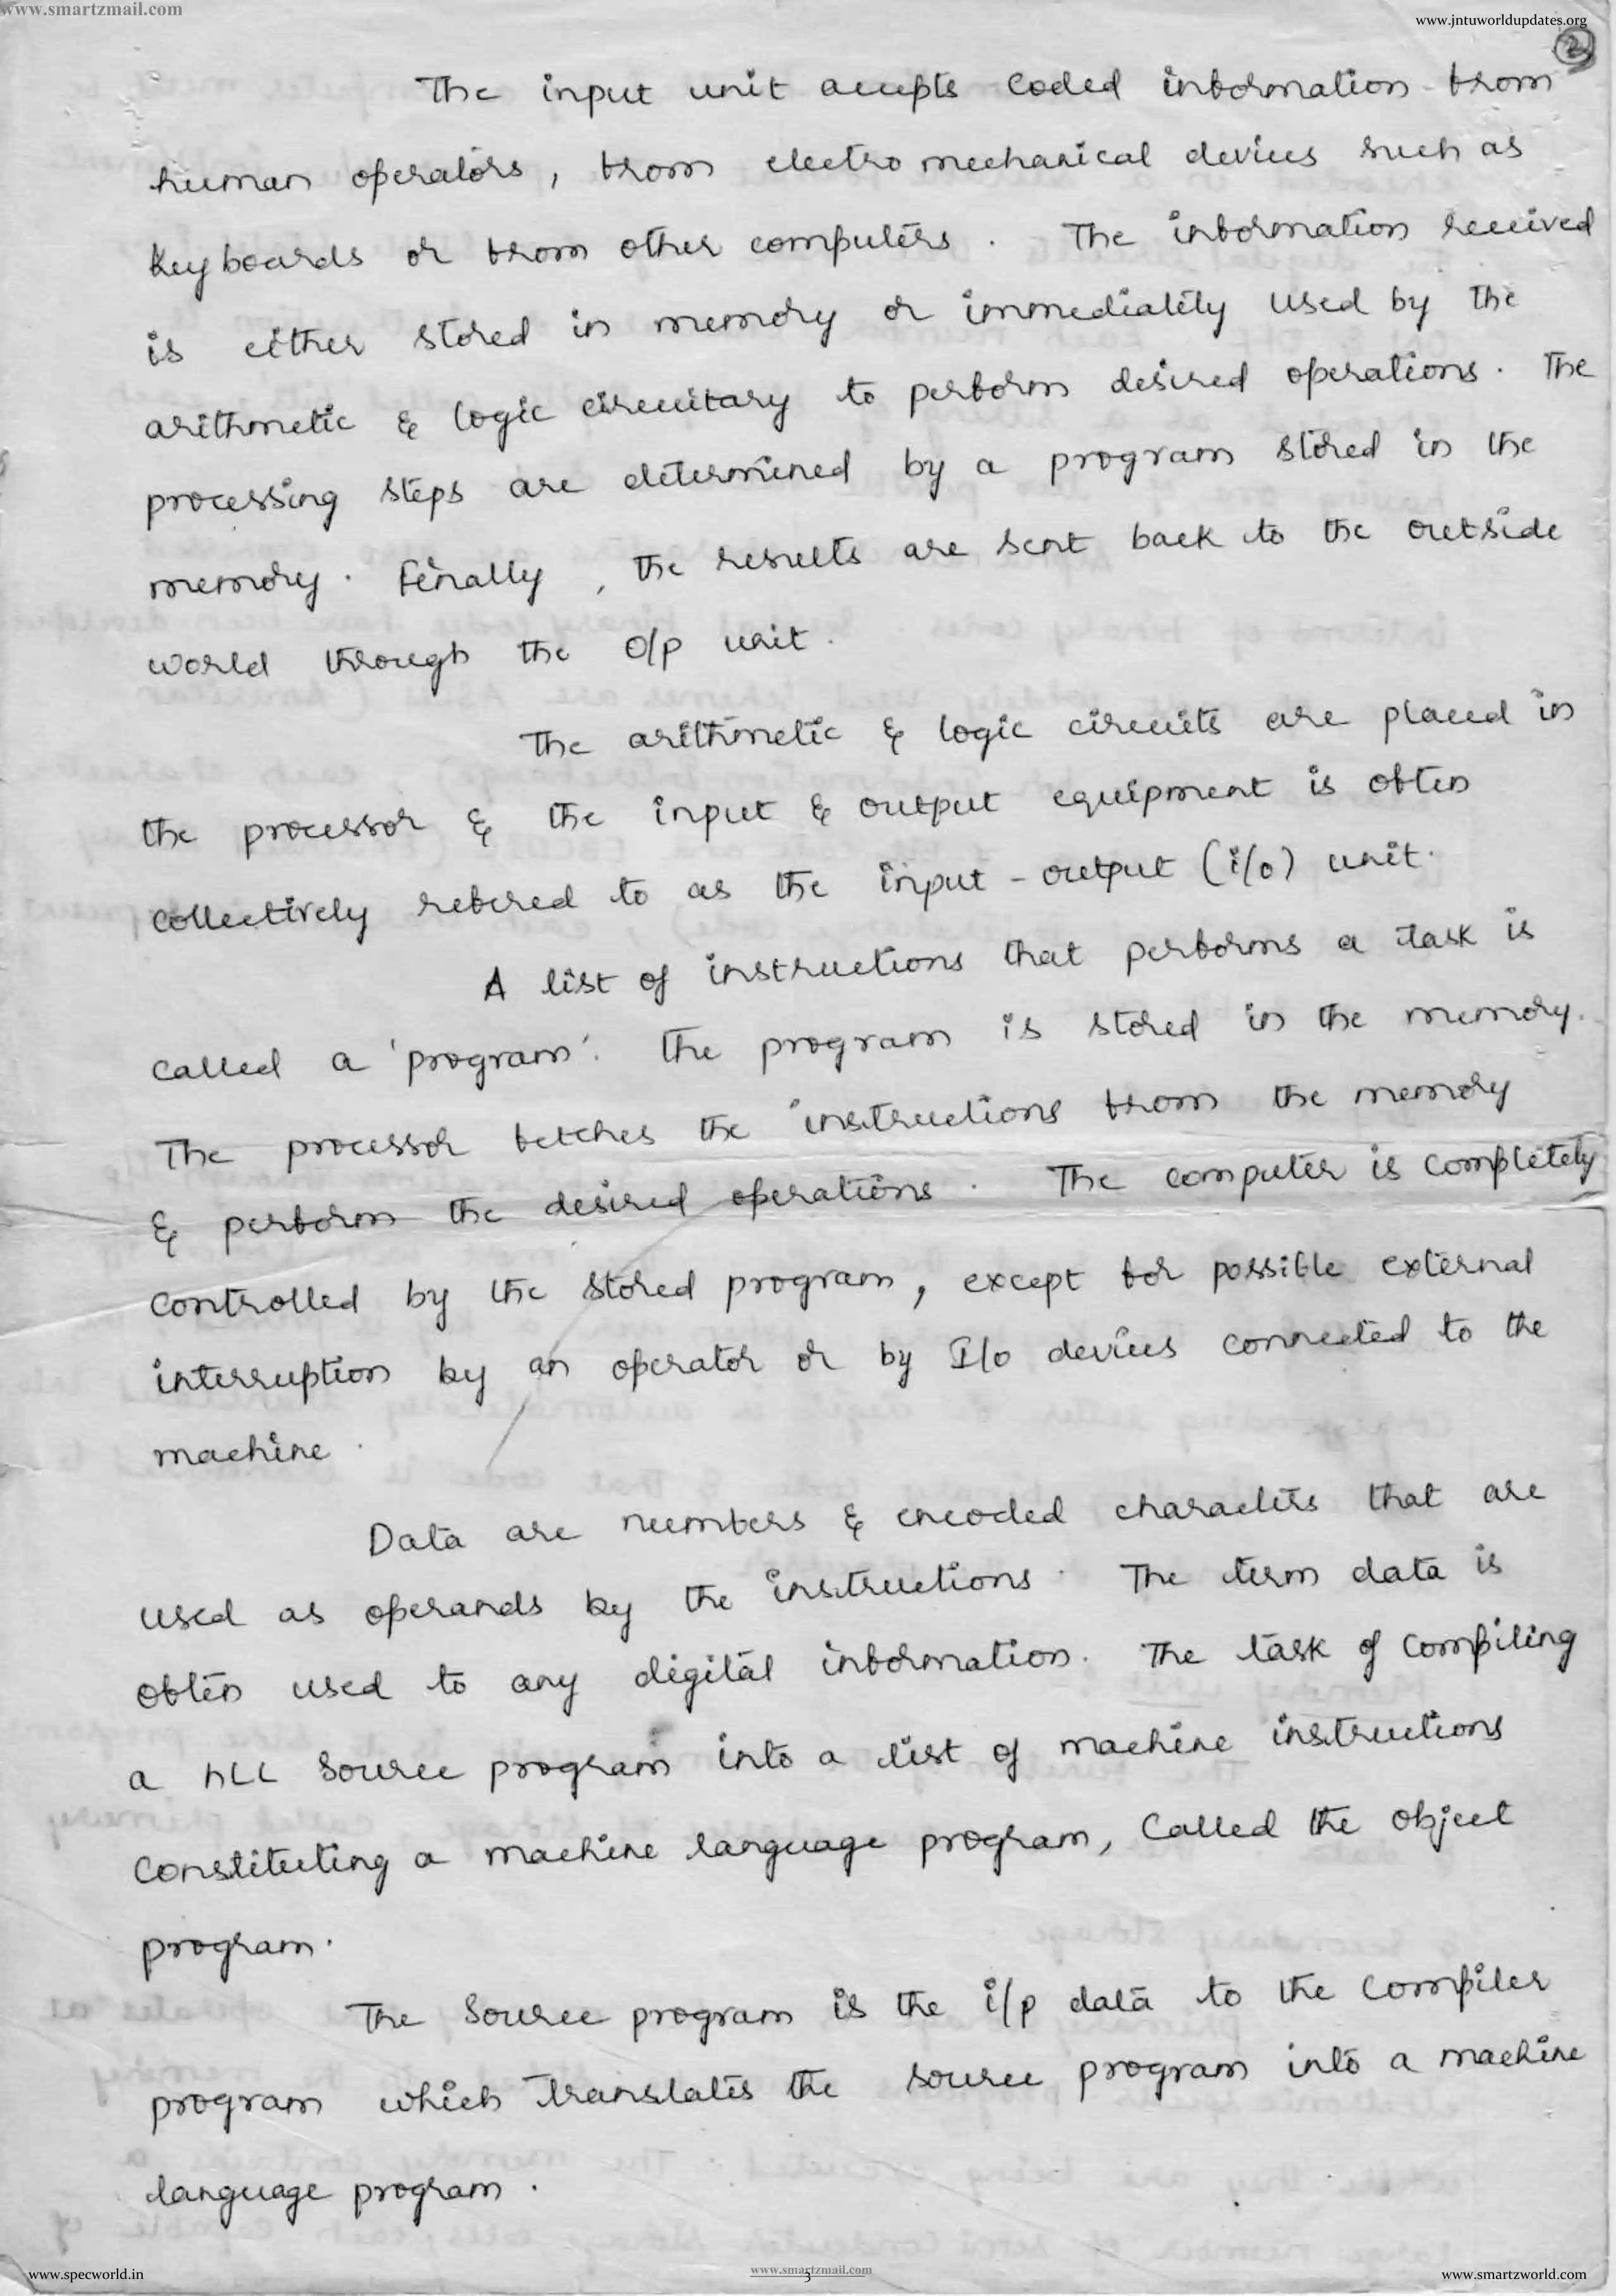 www.smartzmail.com
www.jntuworldupdates.org
2
The input unit accepts coded information from
human operators, from electro mechanical devices such as
keyboards or from other computers. The information received
is either stored in memory or immediately used by the
arithmetic & logic circuitary to perform desired operations. The
processing steps are determined by a program stored in the
memory. Finally, the results are sent back to the outside
world through the o/p unit.
The arithmetic & logic circuits are placed in
the processor & the input & output equipment is often
collectively refered to as the input-output (i/o) unit.
A list of instructions that performs a task is
called a 'program'. The program is stored in the memory.
The processor fetches the instructions from the memory
& perform the desired operations. The computer is completely
controlled by the stored program, except for possible external
interruption by an operator or by I/o devices connected to the
machine.
Data are numbers & encoded characters that are
used as operands by the instructions. The term data is
often used to any digital information. The task of compiling
a HLL source program into a list of machine instructions
constituting a machine language program, called the object
program.
The source program is the i/p data to the compiler
program which translates the source program into a machine
language program.
www.specworld.in
www.smartzmail.com
3
www.smartzworld.com